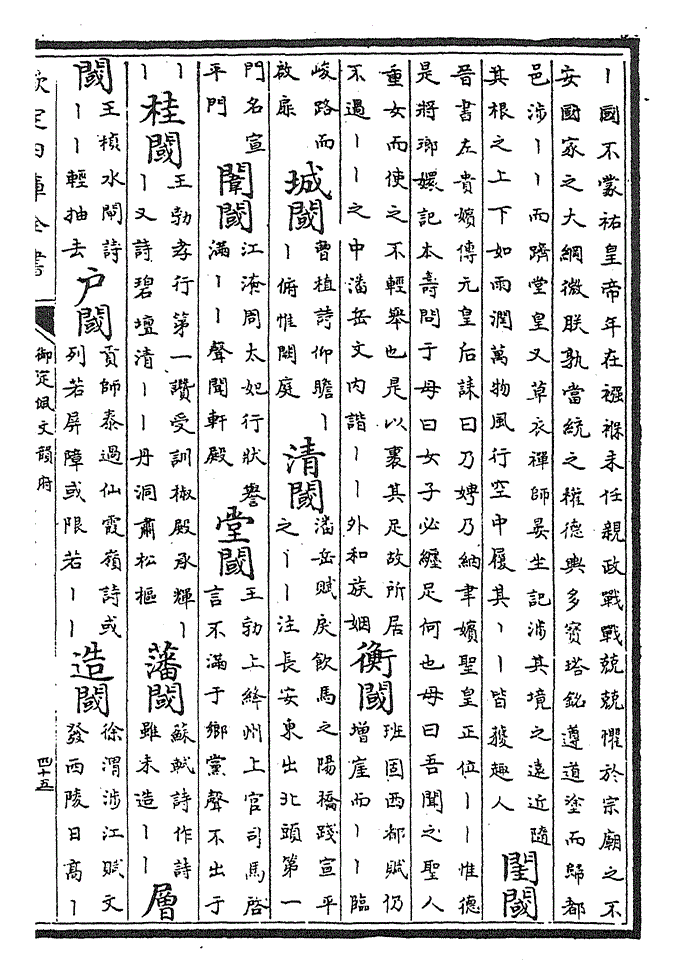 丨國不蒙祐皇帝年在襁褓未任親政戰戰兢兢懼於宗廟之不
安國家之大綱微朕孰當統之權德輿多寳塔銘遵道塗而歸都
邑涉丨丨而躋堂皇又草衣禪師晏坐記涉其境之遠近隨
其根之上下如雨潤萬物風行空中履其丨丨皆獲趣人
閨閾
晉書左貴嬪傳元皇后誄曰乃娉乃納聿嬪聖皇正位丨丨惟德
是將瑯嬛記本壽問于母曰女子必纒足何也母曰吾聞之聖人
重女而使之不輕舉也是以裹其足故所居
不過丨丨之中潘岳文内諧丨丨外和族姻
衡閾
班固西都賦仍
增崖而丨丨臨
峻路而
啟扉
城閾
曹植詩仰瞻丨
丨俯惟闕庭
清閾
潘岳賦戾飲馬之陽橋踐宣平
之丨丨注長安東出北頭第一
門名宣
平門
閫閾
江淹周太妃行狀譽
滿丨丨聲聞軒殿
堂閾
王勃上絳州上官司馬啓
言不滿于鄉黨聲不出于
丨
丨
桂閾
王勃孝行第一讚受訓椒殿承輝丨
丨又詩碧壇清丨丨丹洞肅松樞
藩閾
蘇軾詩作詩
雖未造丨丨
層
閾
王楨水閘詩
丨丨輕抽去
户閾
貢師泰過仙霞嶺詩或
列若屏障或限若丨丨
造閾
徐渭涉江賦文
發西陵日高丨
欽定四庫全書
御定佩文韻府
四十五